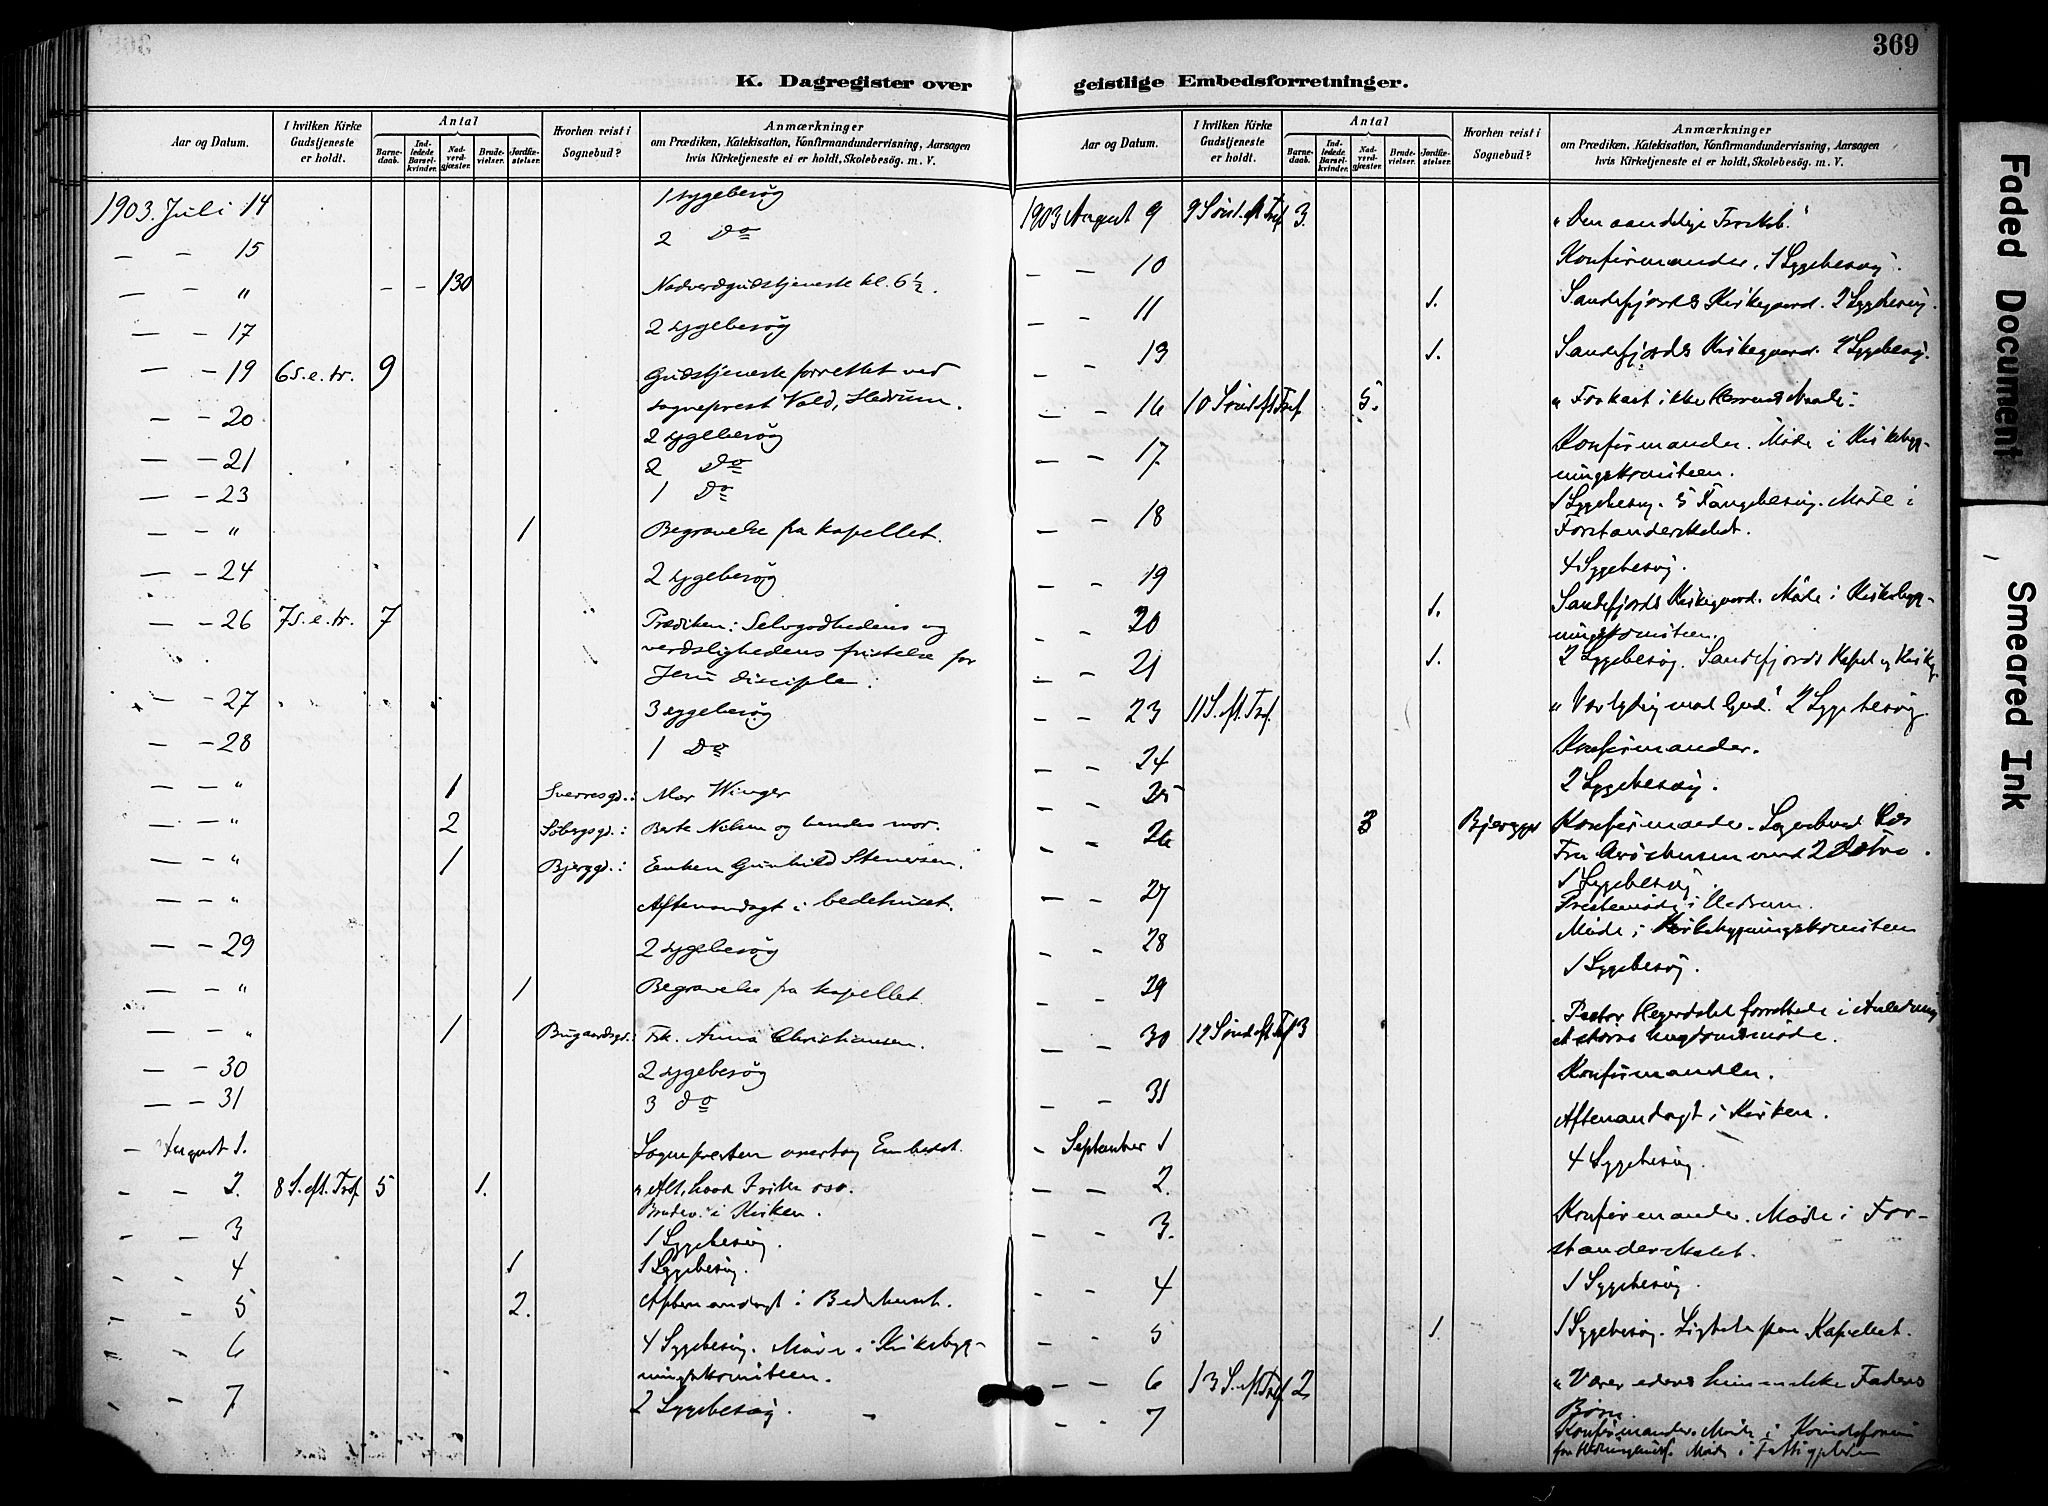 369
K. Dagregister over geistlige Embedsforretninger.
Aar og Datum.
I hvilken Kirke Gudstjeneste er holdt.
Antal
Barnedaab.
Indledede Barselkvinder.
Nadverdgjæster.
Brudevielser.
Jordfæstelser.
Hvorhen reist i Sognebud?
Anmærkninger
om Prædiken, Katekisation, Konfirmandundervisning, Aarsagen
hvis Kirketjeneste ei er holdt, Skolebesög. m. V.
1903. Juli 14 1 sygebesøg
— — 15 2 Do
— — " - - 130 Nadverdgudstjeneste kl. 6½.
— — 17 2 sygebesøg
— — 19 6 s. e. tr. 9 Gudstjeneste forrettet ved
sogneprest Vold, Hedrum.
— — 20 2 sygebesøg
— — 21 2 Do
— — 23 1 Do
— — " 1 Begravelse fra kapellet.
— — 24 2 sygebesøg
— — 26 7 s. e. tr. 7 Prædiken: Selvgodhedens og
verdslighedens fristelse for
Jesu disciple.
— — 27 3 sygebesøg
— — 28 1 Do
— — " 1 Sverresgd.: Mor Winger
— — " 2 Søbergsgd.: Berte Nilsen og hendes mor.
— — " 1 Bjerggd.: Enken Gunhild Stenersen.
— — " Aftenandagt i bedehuset.
— — 29 2 sygebesøg
— — " 1 Begravelse fra kapellet
— — " 1 Bugaardsgd.: Frk. Anna Christiansen.
— — 30 2 sygebesøg
— — 31 3 do
— August 1. Sognepresten overtog Embedet.
- - 2. 8 S. eft. Tref 5 1. "Alt, hvad
Brudev. i Kirken.
- - 3 1 Sygebesøg.
- - 4 1 1 Sygebesøg.
- - 5 2. Aftenandagt i Bedehuset.
- - 6 4 Sygebesøg. Møde i Kirkebyg-
ningskomiteen.
- - 7 2 Sygebesøg.
Aar og Datum.
I hvilken Kirke Gudstjeneste er holdt.
Antal
Barnedaab.
Indledede Barselkvinder.
Nadverdgjæster.
Brudevielser.
Jordfæstelser.
Hvorhen reist i Sognebud?
Anmærkninger
om Prædiken, Katekisation, Konfirmandundervisning, Aarsagen
hvis Kirketjeneste ei er holdt, Skolebesög. m. V.
1903 August 9 9 Sønd. eft Tref 3. "Den aandelige
— — 10 Konfirmander. 1 Sygebesøg.
— — 11 1. Sandefjords Kirkegaard. 2 Sygebesøg.
— — 13 1. Sandefjords Kirkegaard. 2 Sygebesøg.
— — 16 10 Sønd eft Tref 5. "Forkast ikke Herrens Naade".
— — 17. Konfirmander. Møde i Kirkebyg-
ningskomiteen.
— — 18 1 Sygebesøg. 5 Fangebesøg. Møde i
Forstanderskabet.
— — 19 4 Sygebesøg.
— — 20 1. Sandefjords Kirkegaard. Møde i Kirkebyg-
ningskomiteen.
— — 21 1. 2 Sygebesøg. Sandefjords Kapel og Kirkeg.
— — 23 11 S. eft. Tref. "Vær lydig mod Gud." 2 Sygebesøg
— — 24 Konfirmander.
— — 25 2 Sygebesøg.
— — 26 3 Bjerggd Konfirmander. Sognebud hos
Fru med 2 Døtre.
— — 27 1 Sygebesøg.
Prestemøde i Hedrum.
— — 28 Møde i Kirkebygningskomiteen
— — 29 1 Sygebesøg.
— — 30 12 Sønd eft Tref 3 Pastor Hegerdahl forrettede i Anledning
af større Ungdomsmøde.
— — 31 Konfirmander.
Aftenandagt i Kirken.
- September 1 4 Sygebesøg.
— — 2.
— — 3. Konfirmander. Møde i For-
standerskabet.
- - 4 1 Sygebesøg.
— — 5 1. 1 Sygebesøg. Ligtale paa Kapellet.
— — 6 13 S. eft Tref 2 "Værer eders himmelske Faders
Børn.
— - 7 Konfirmander. Møde i
Møde i
Faded Document
Smeared Ink